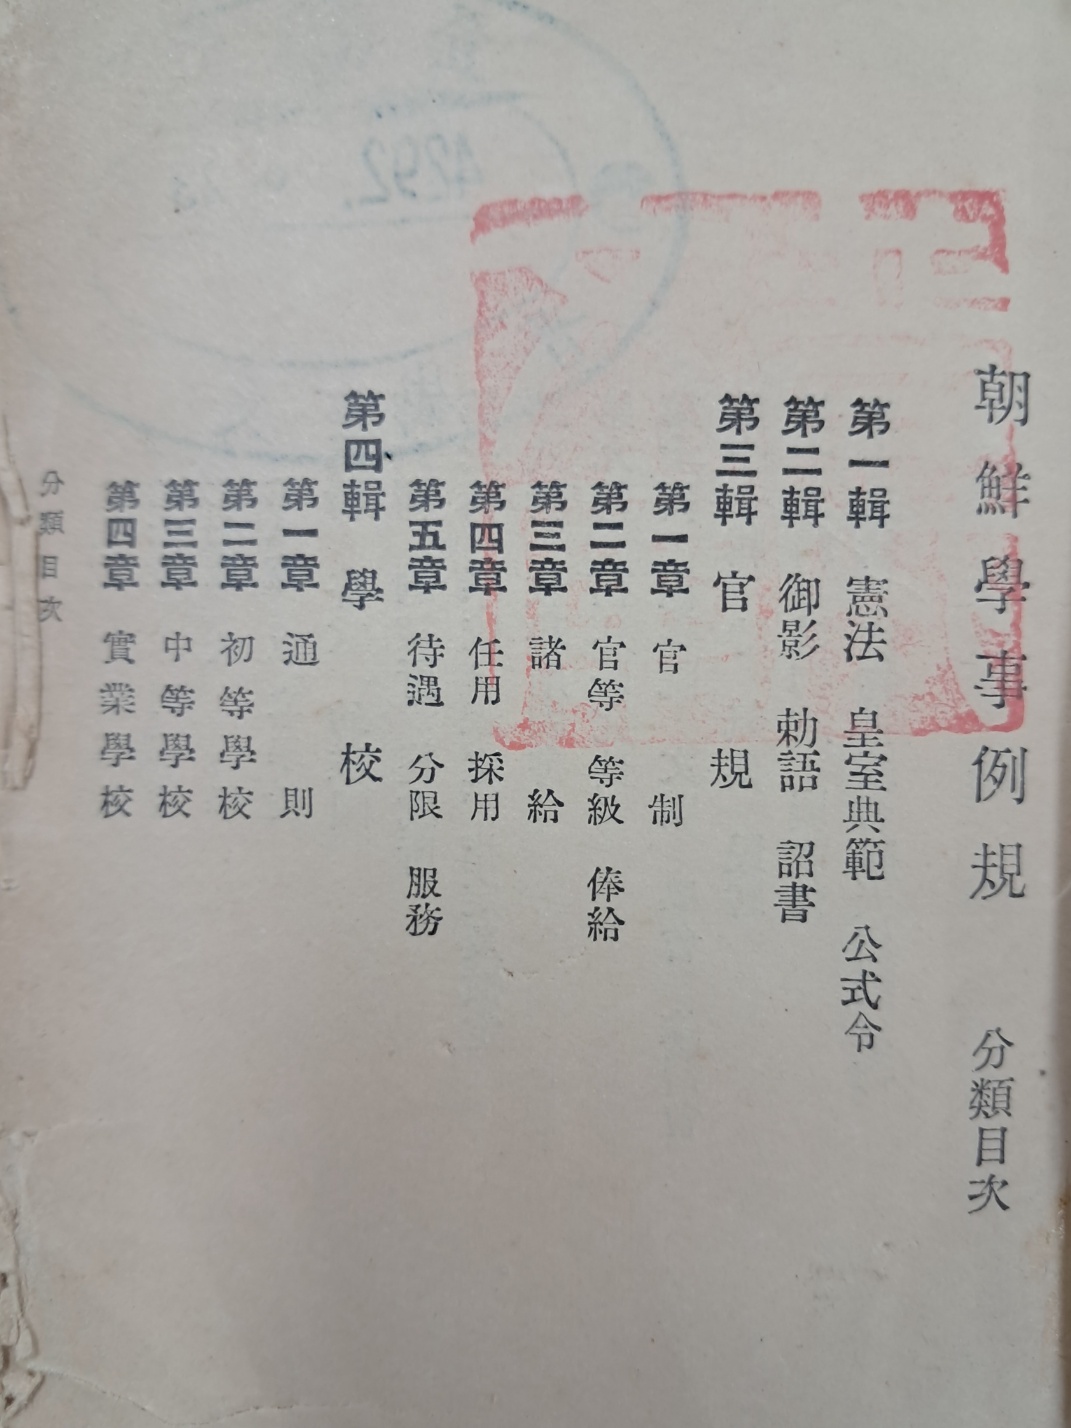 朝鮮學事例規 分類目次
第一輯 憲法 皇室典範 公式令
第二輯 御影 勅語 詔書
第三輯 官規
第一章 官制
第二章 官等 等級 俸給
第三章 諸給
第四章 任用 採用
第五章 待遇 分限 服務
第四輯 學校
第一章 通則
第二章 初等學校
第三章 中等學校
第四章 實業學校
分類目次
4292.